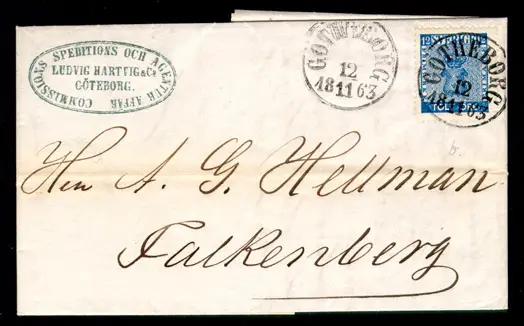 COMMISSIONS SPEDITIONS OCH AGENTUR AFFÄR
LUDVIG HARTVIG & Co
GÖTEBORG.
GÖTHEBORG
12
18 11 63
12
GÖTHEBORG
12
18 11 63
TOLF
Herr A. G. Hellman
Falkenberg